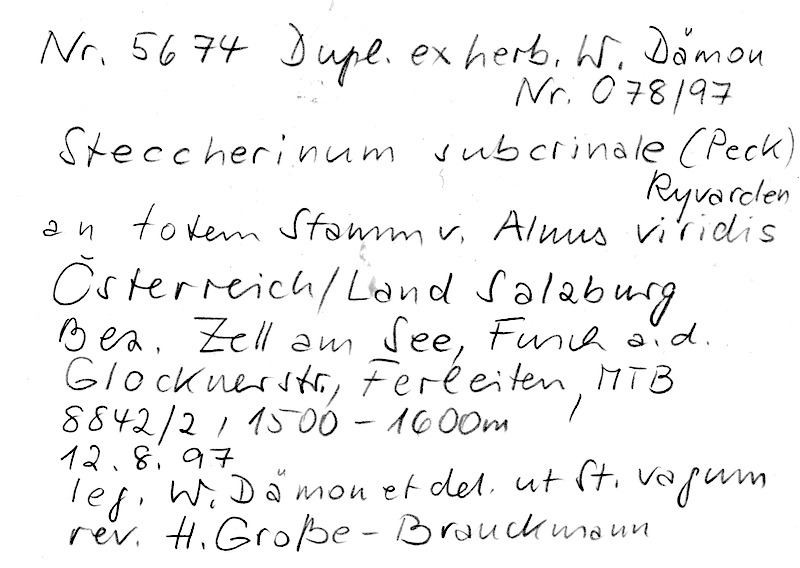 Nr. 5674 Dupl. ex herb. W. Dämon
Nr. 078/97
Steccherinum subcrinale (Peck)
Ryvarden
an totem Stamm v. Alnus viridis
Österreich/Land Salzburg
Bez. Zell am See, Fusch a.d.
Glocknerstr., Ferleiten, MTB
8842/2, 1500-1600m
12.8.97
leg. W. Dämon et det. ut St. vagum
rev. H. Große-Brauckmann